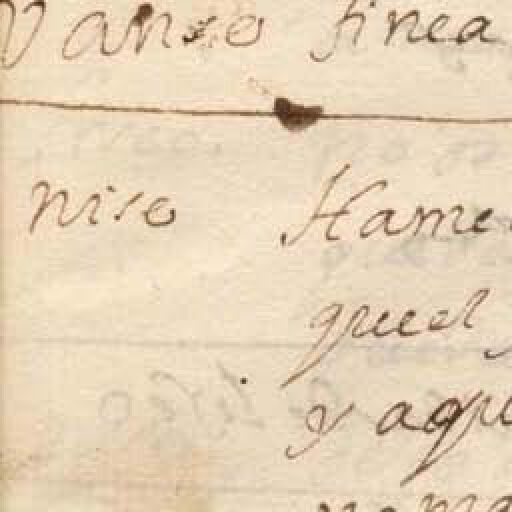 Vanse finea
niso Hame
queel
y aque